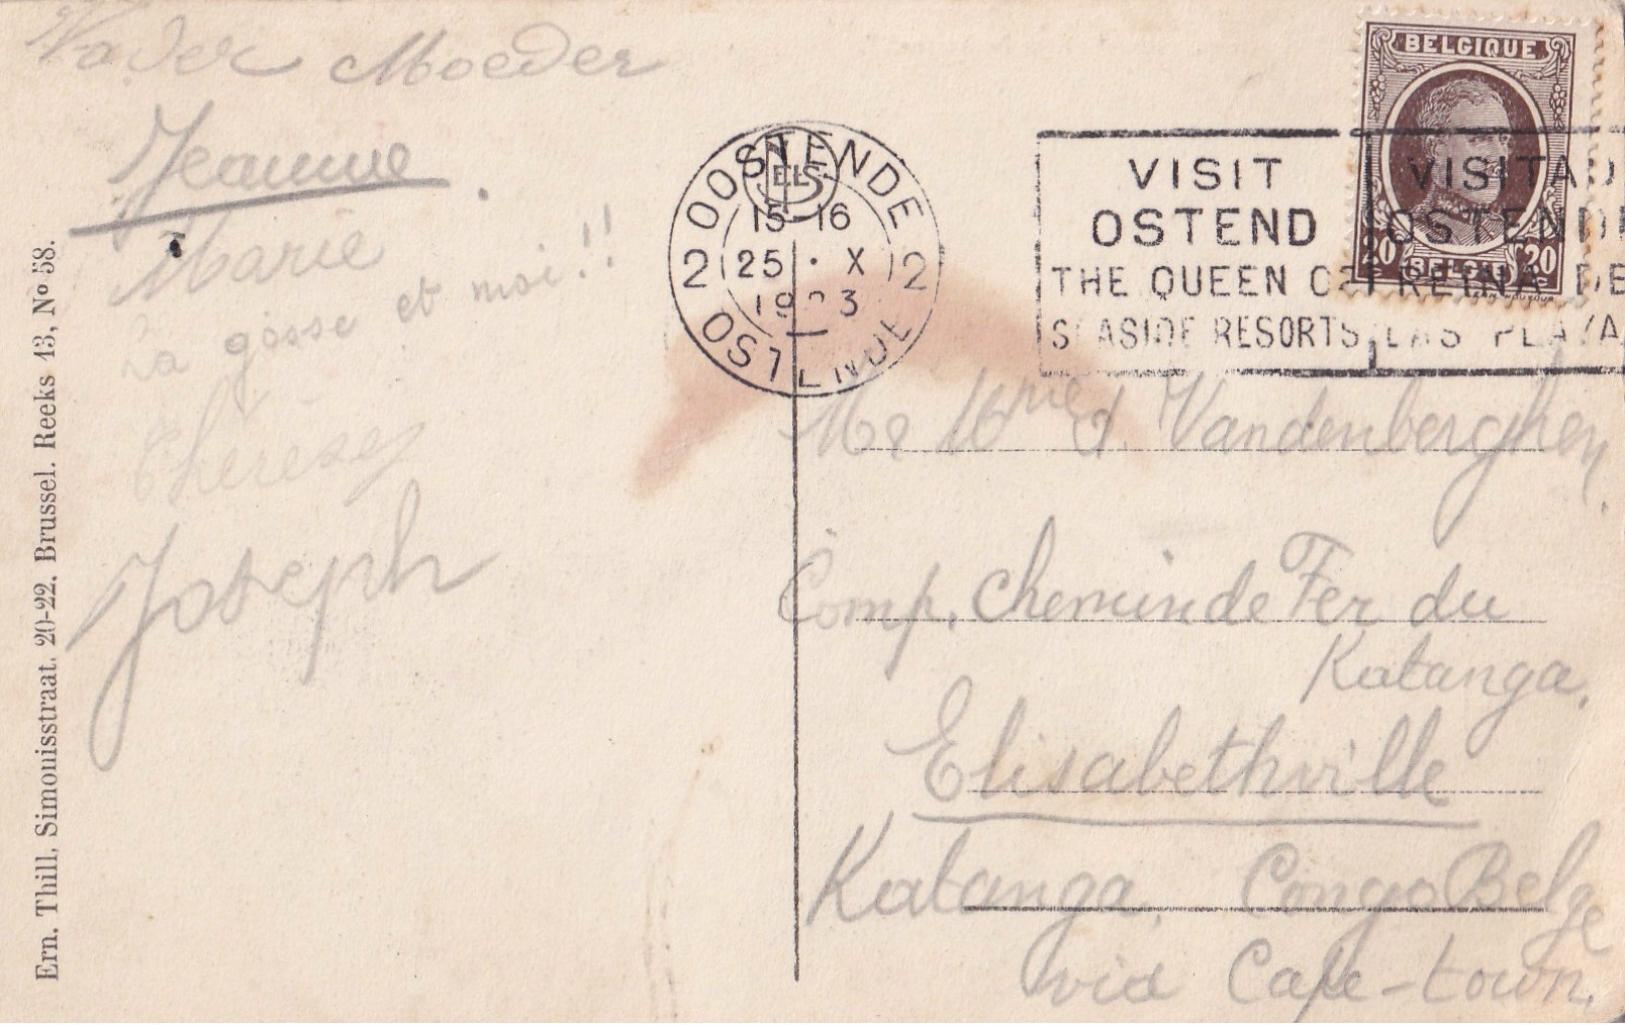 Vader Moeder
Jeanne.
Marie
La gosse et moi!!
Thérèse
Joseph
Ern. Thill, Simonisstraat, 20-22, Brussel. Reeks 13, No 58.
OOSTENDE
NELS
15-16
2 25 · X 2
19 3
OSTENDE
VISIT
OSTEND
THE QUEEN OF
SEASIDE RESORTS
VISITAD
OSTENDE
REINA DE
LAS PLAYA
BELGIQUE
20 BELGIË 20
Vandenberghen,
Comp. Chemin de Fer du
Katanga.
Elisabethville
Katanga, Congo Belge
via Cape-town.